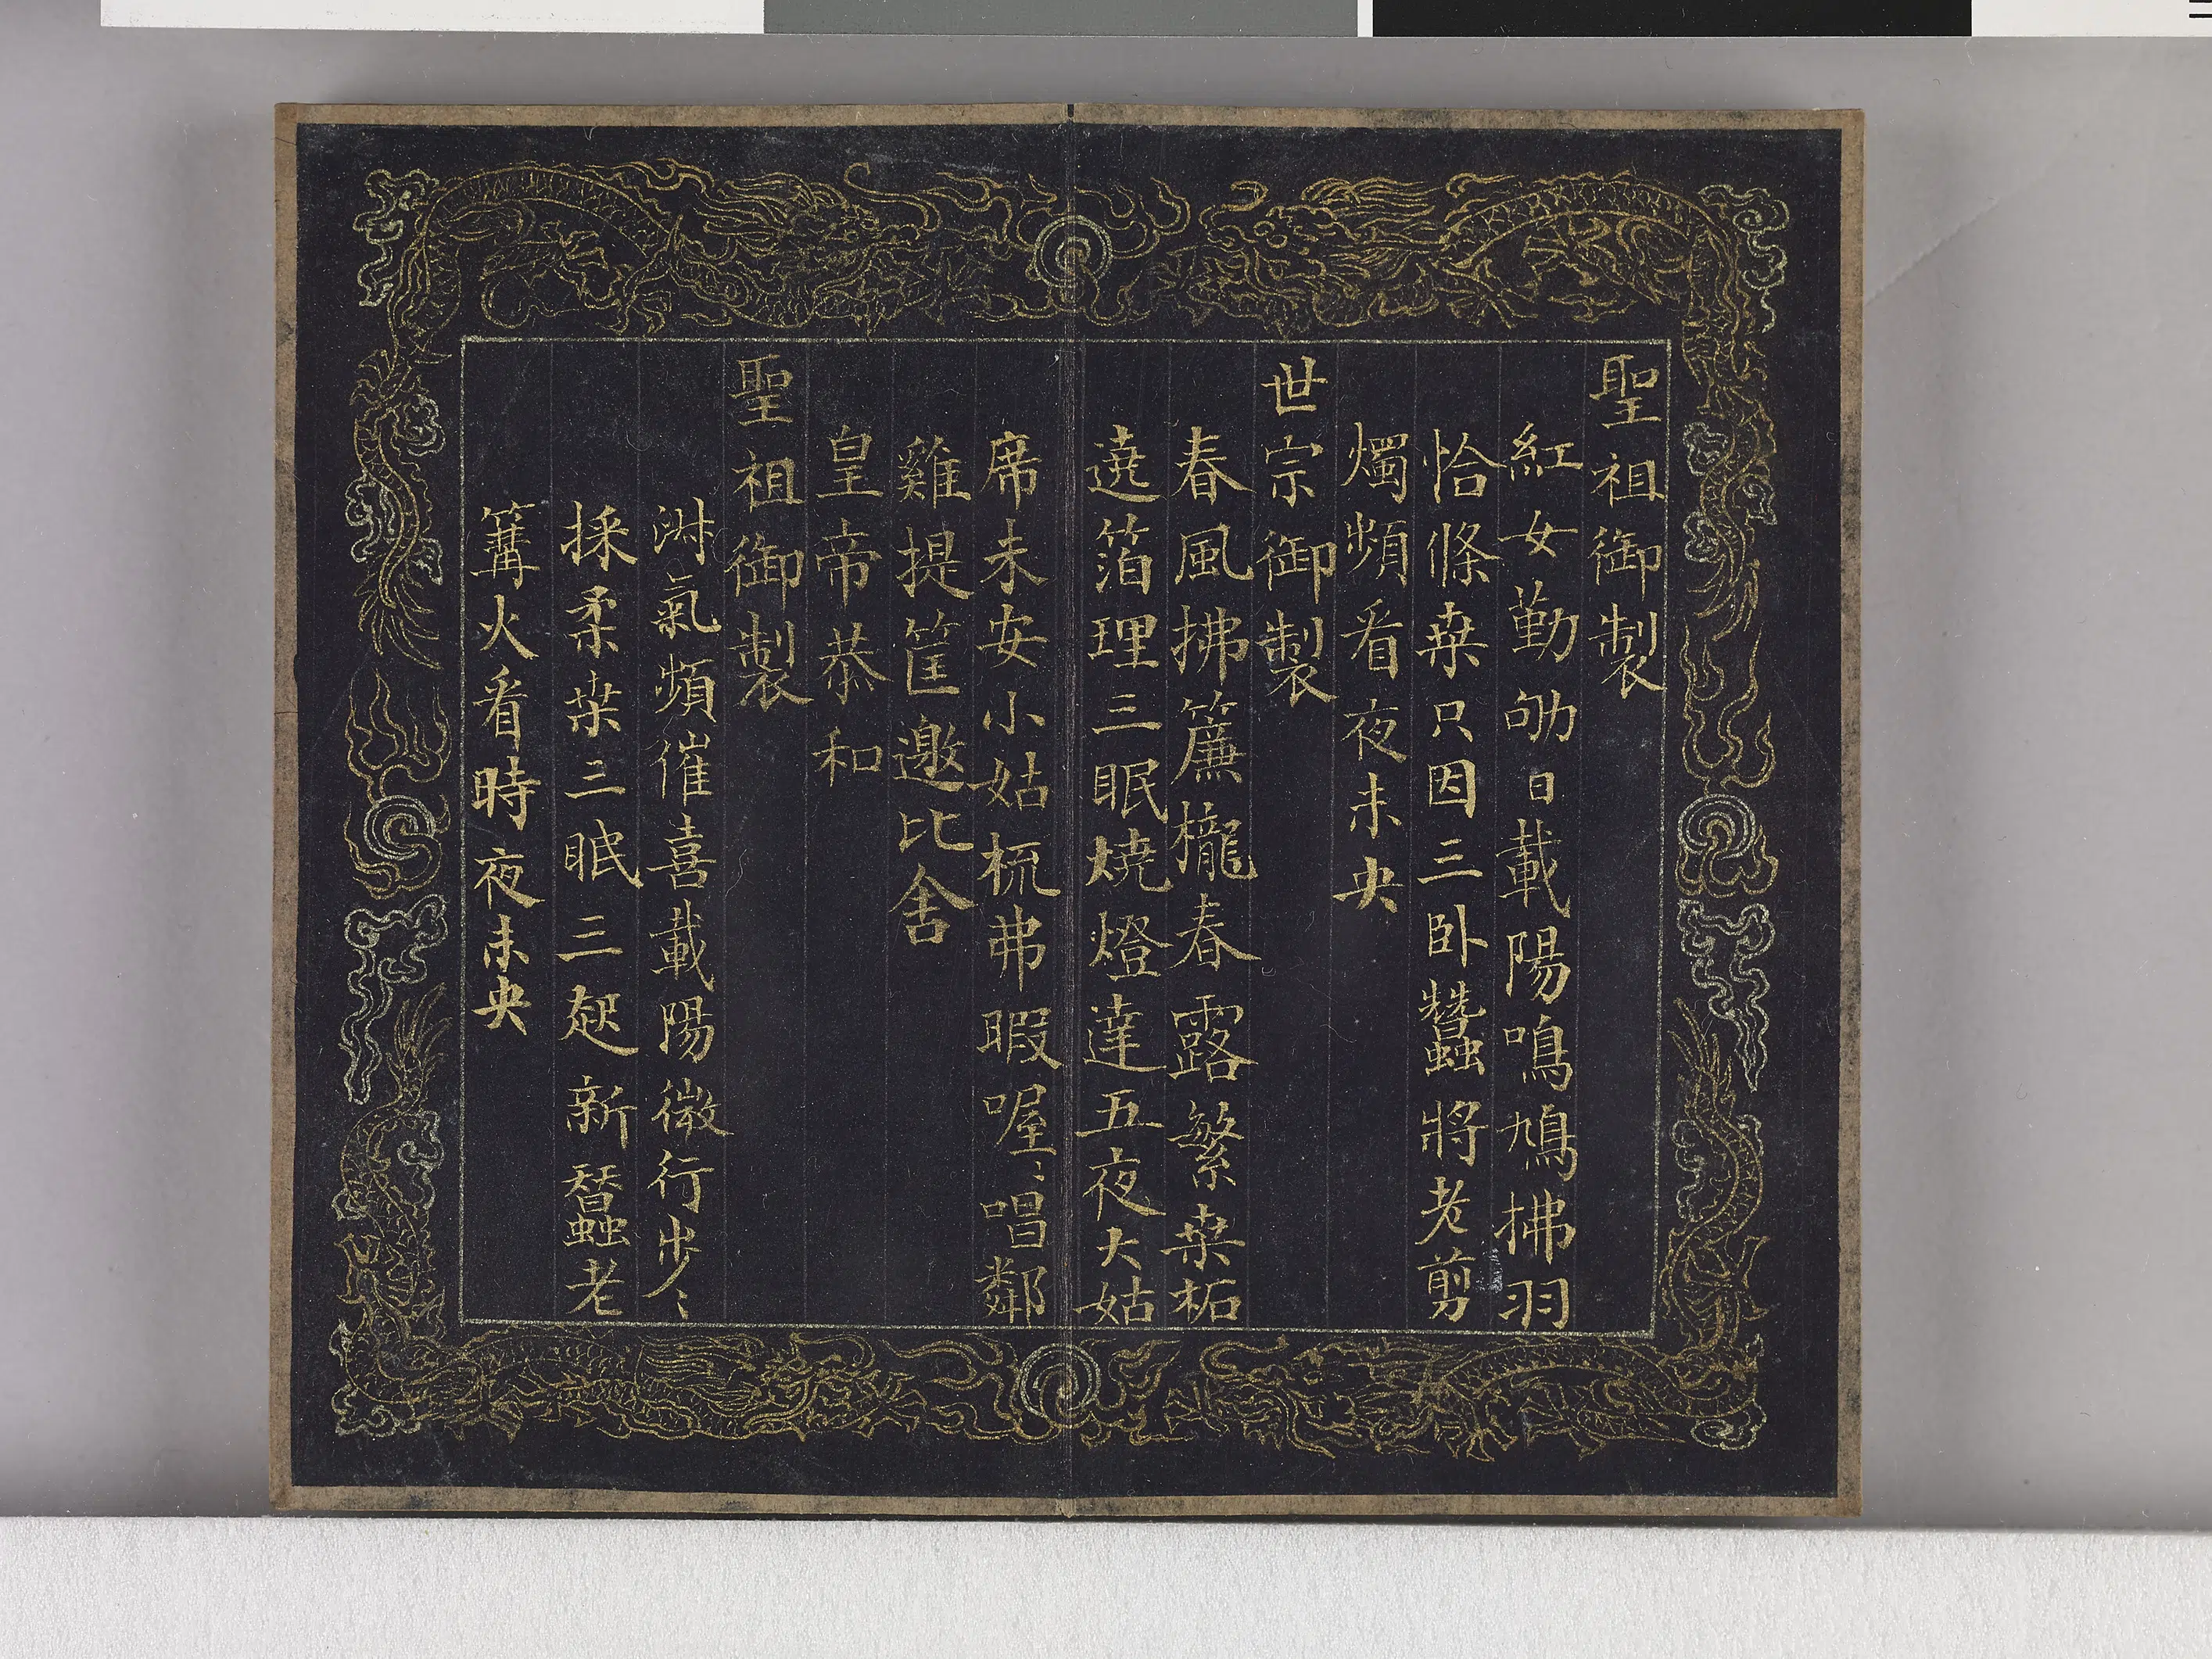 聖祖御製
紅女勤劬日載陽鳴鳩拂羽
恰條桒只因三卧蠶將老剪
燭頻看夜未央
世宗御製
春風拂簾櫳春露繁桒柘
遶箔理三眠燒燈達五夜大姑
席未安小姑梳弗暇喔〻唱鄰
雞提筐邀比舍
皇帝恭和
聖祖御製
澍氣頻催喜載陽微行步〻
採柔桒三眠三起新蠶老
篝火看時夜未央